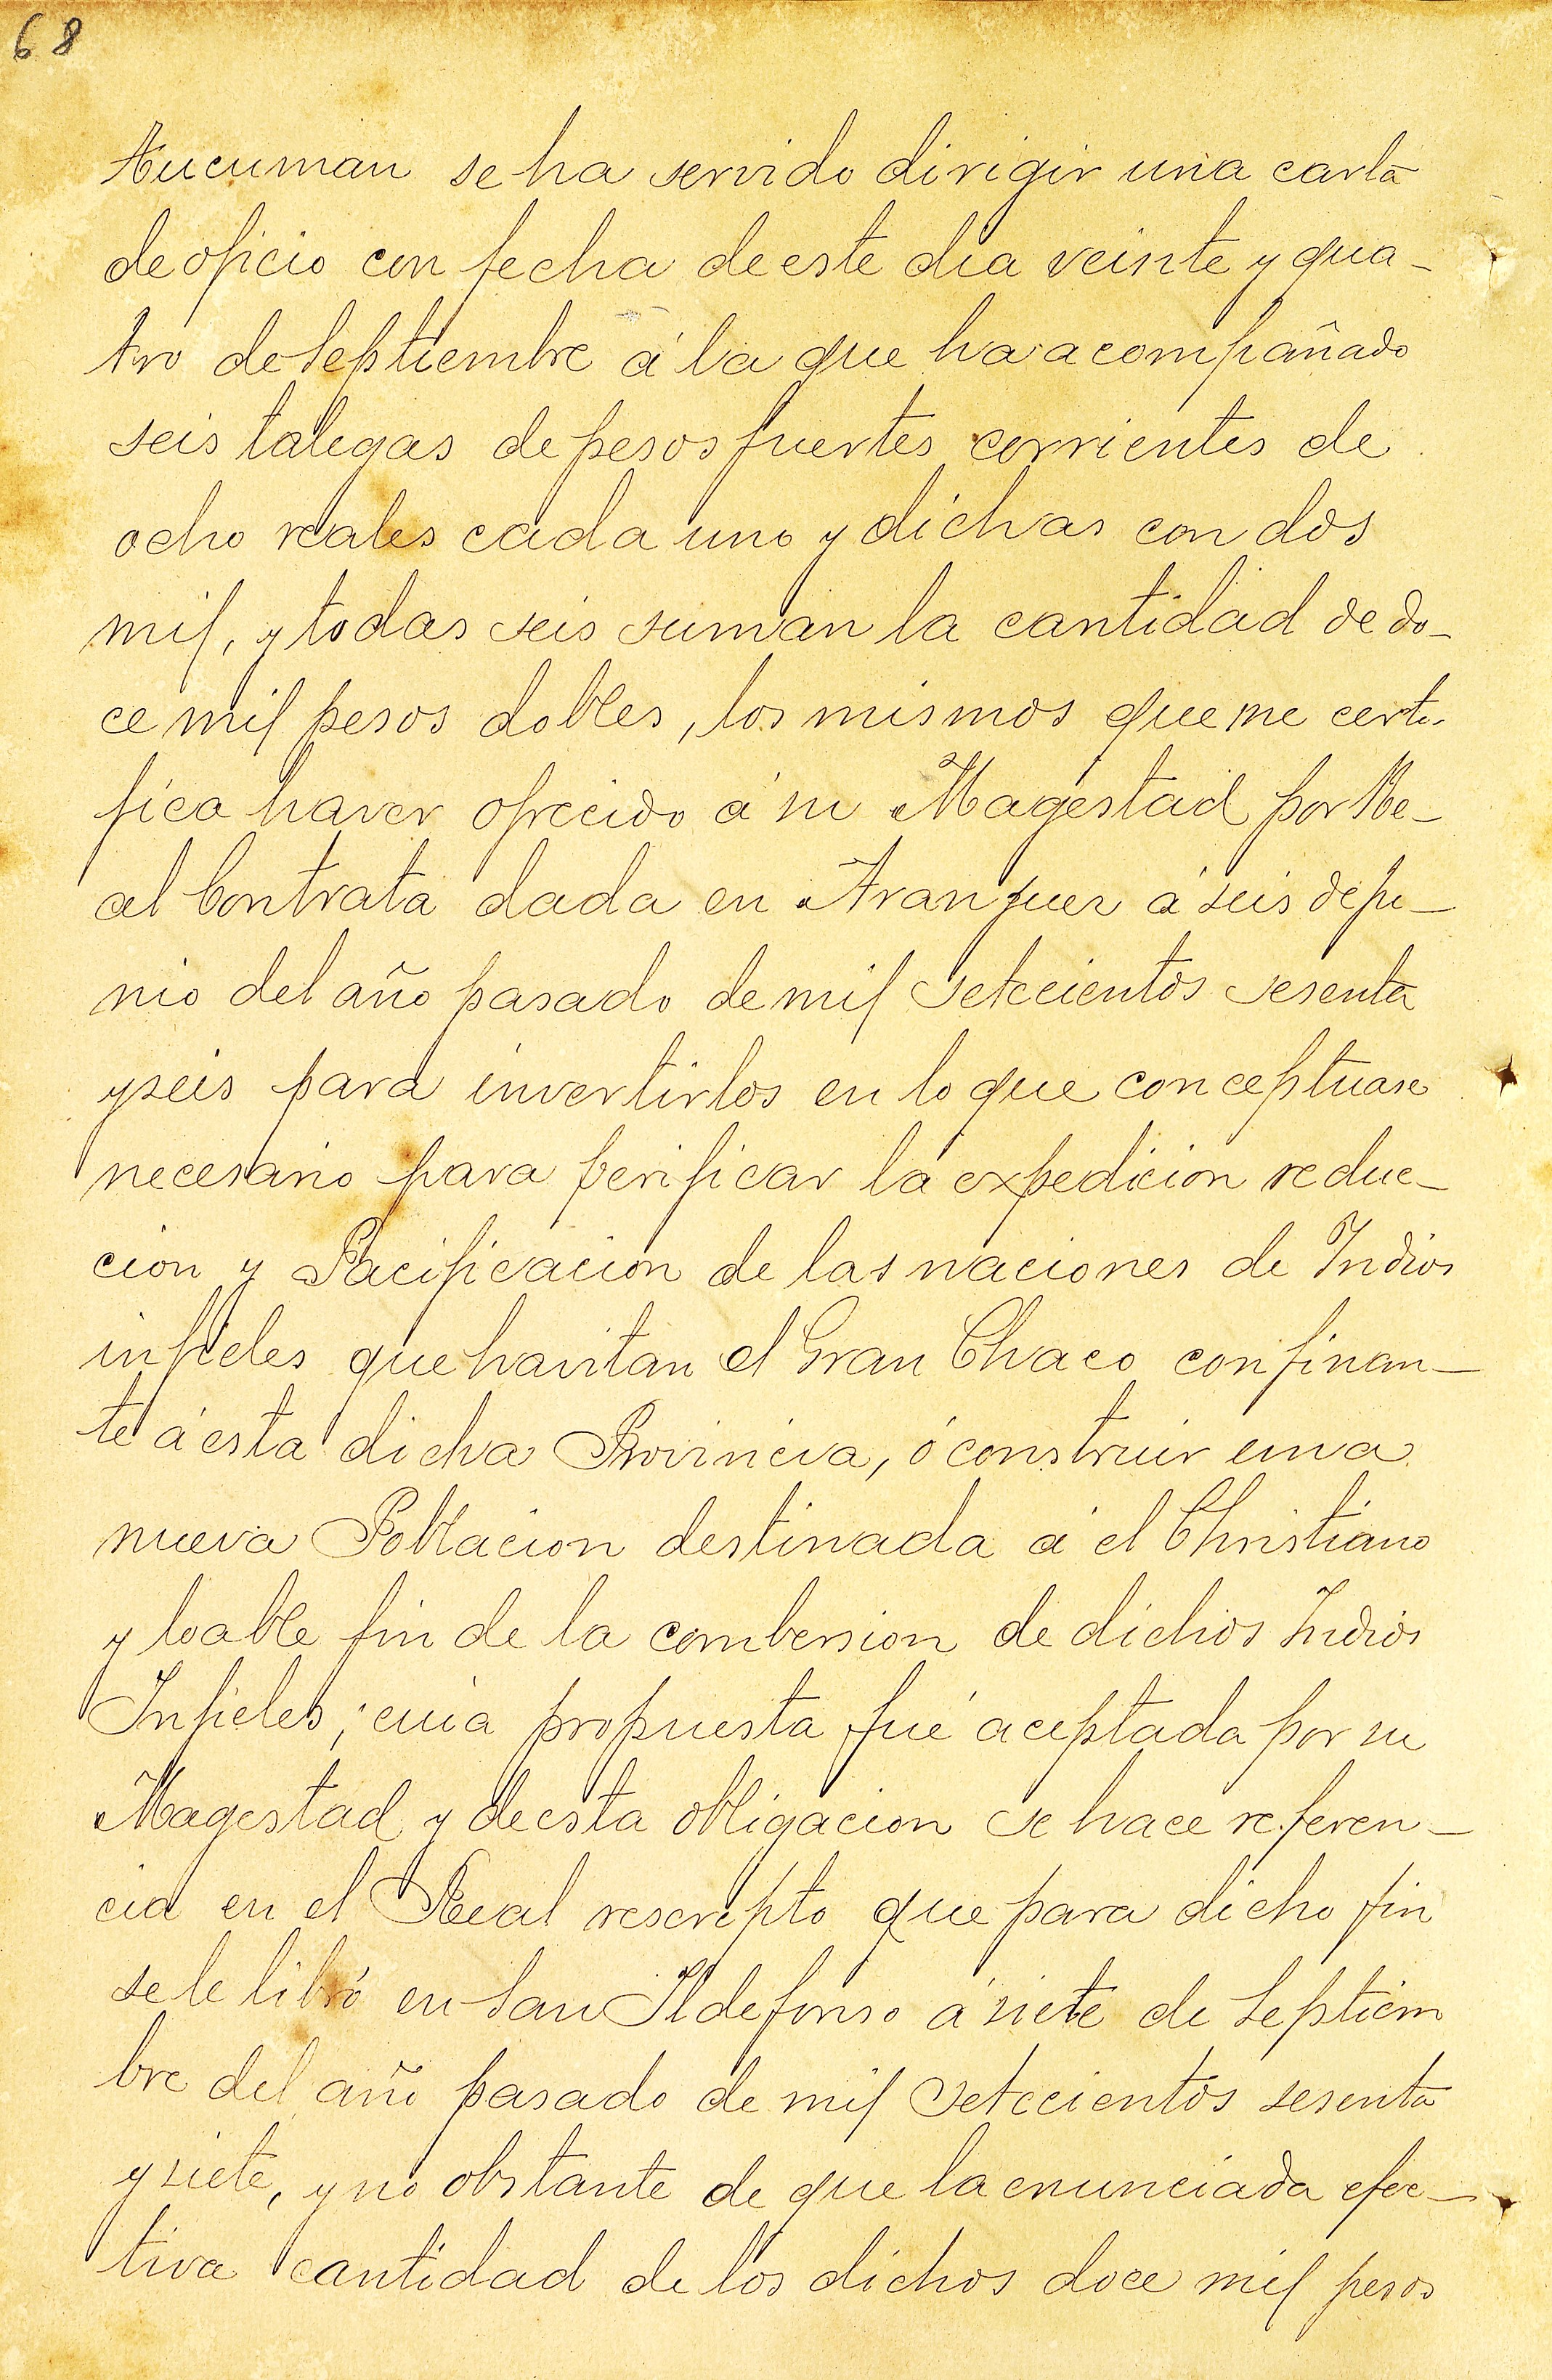 68
Tucuman se ha servido dirigir una carta
de oficio con fecha de este dia veinte y qua-
tro de Septiembre á la que ha acompañado
seis talegas de pesos fuertes corrientes de
ocho reales cada uno y dichas con dos
mil, y todas seis suman la cantidad de do-
ce mil pesos dobles, los mismos que me certi-
fica haver ofrecido á su Magestad por Re-
al Contrata dada en Aranjuez á seis de ju-
nio del año pasado de mil setecientos sesenta
y seis para invertirlos en lo que conceptuase
necesario para berificar la expedicion reduc-
cion y Pacificacion de las naciones de Indios
infieles que havitan el Gran Chaco confinan-
te á esta dicha Provincia, ó construir una
nueva Poblacion destinada á el Christiano
y loable fin de la combersion de dichos Indios
Infieles; cuia propuesta fué aceptada por su
Magestad y de esta obligacion se hace referen-
cia en el Real rescripto que para dicho fin
se le libró en San Ildefonso á siete de Septiem
bre del año pasado de mil setecientos sesenta
y siete, y no obstante de que la enunciada efec-
tiva cantidad de los dichos doce mil pesos